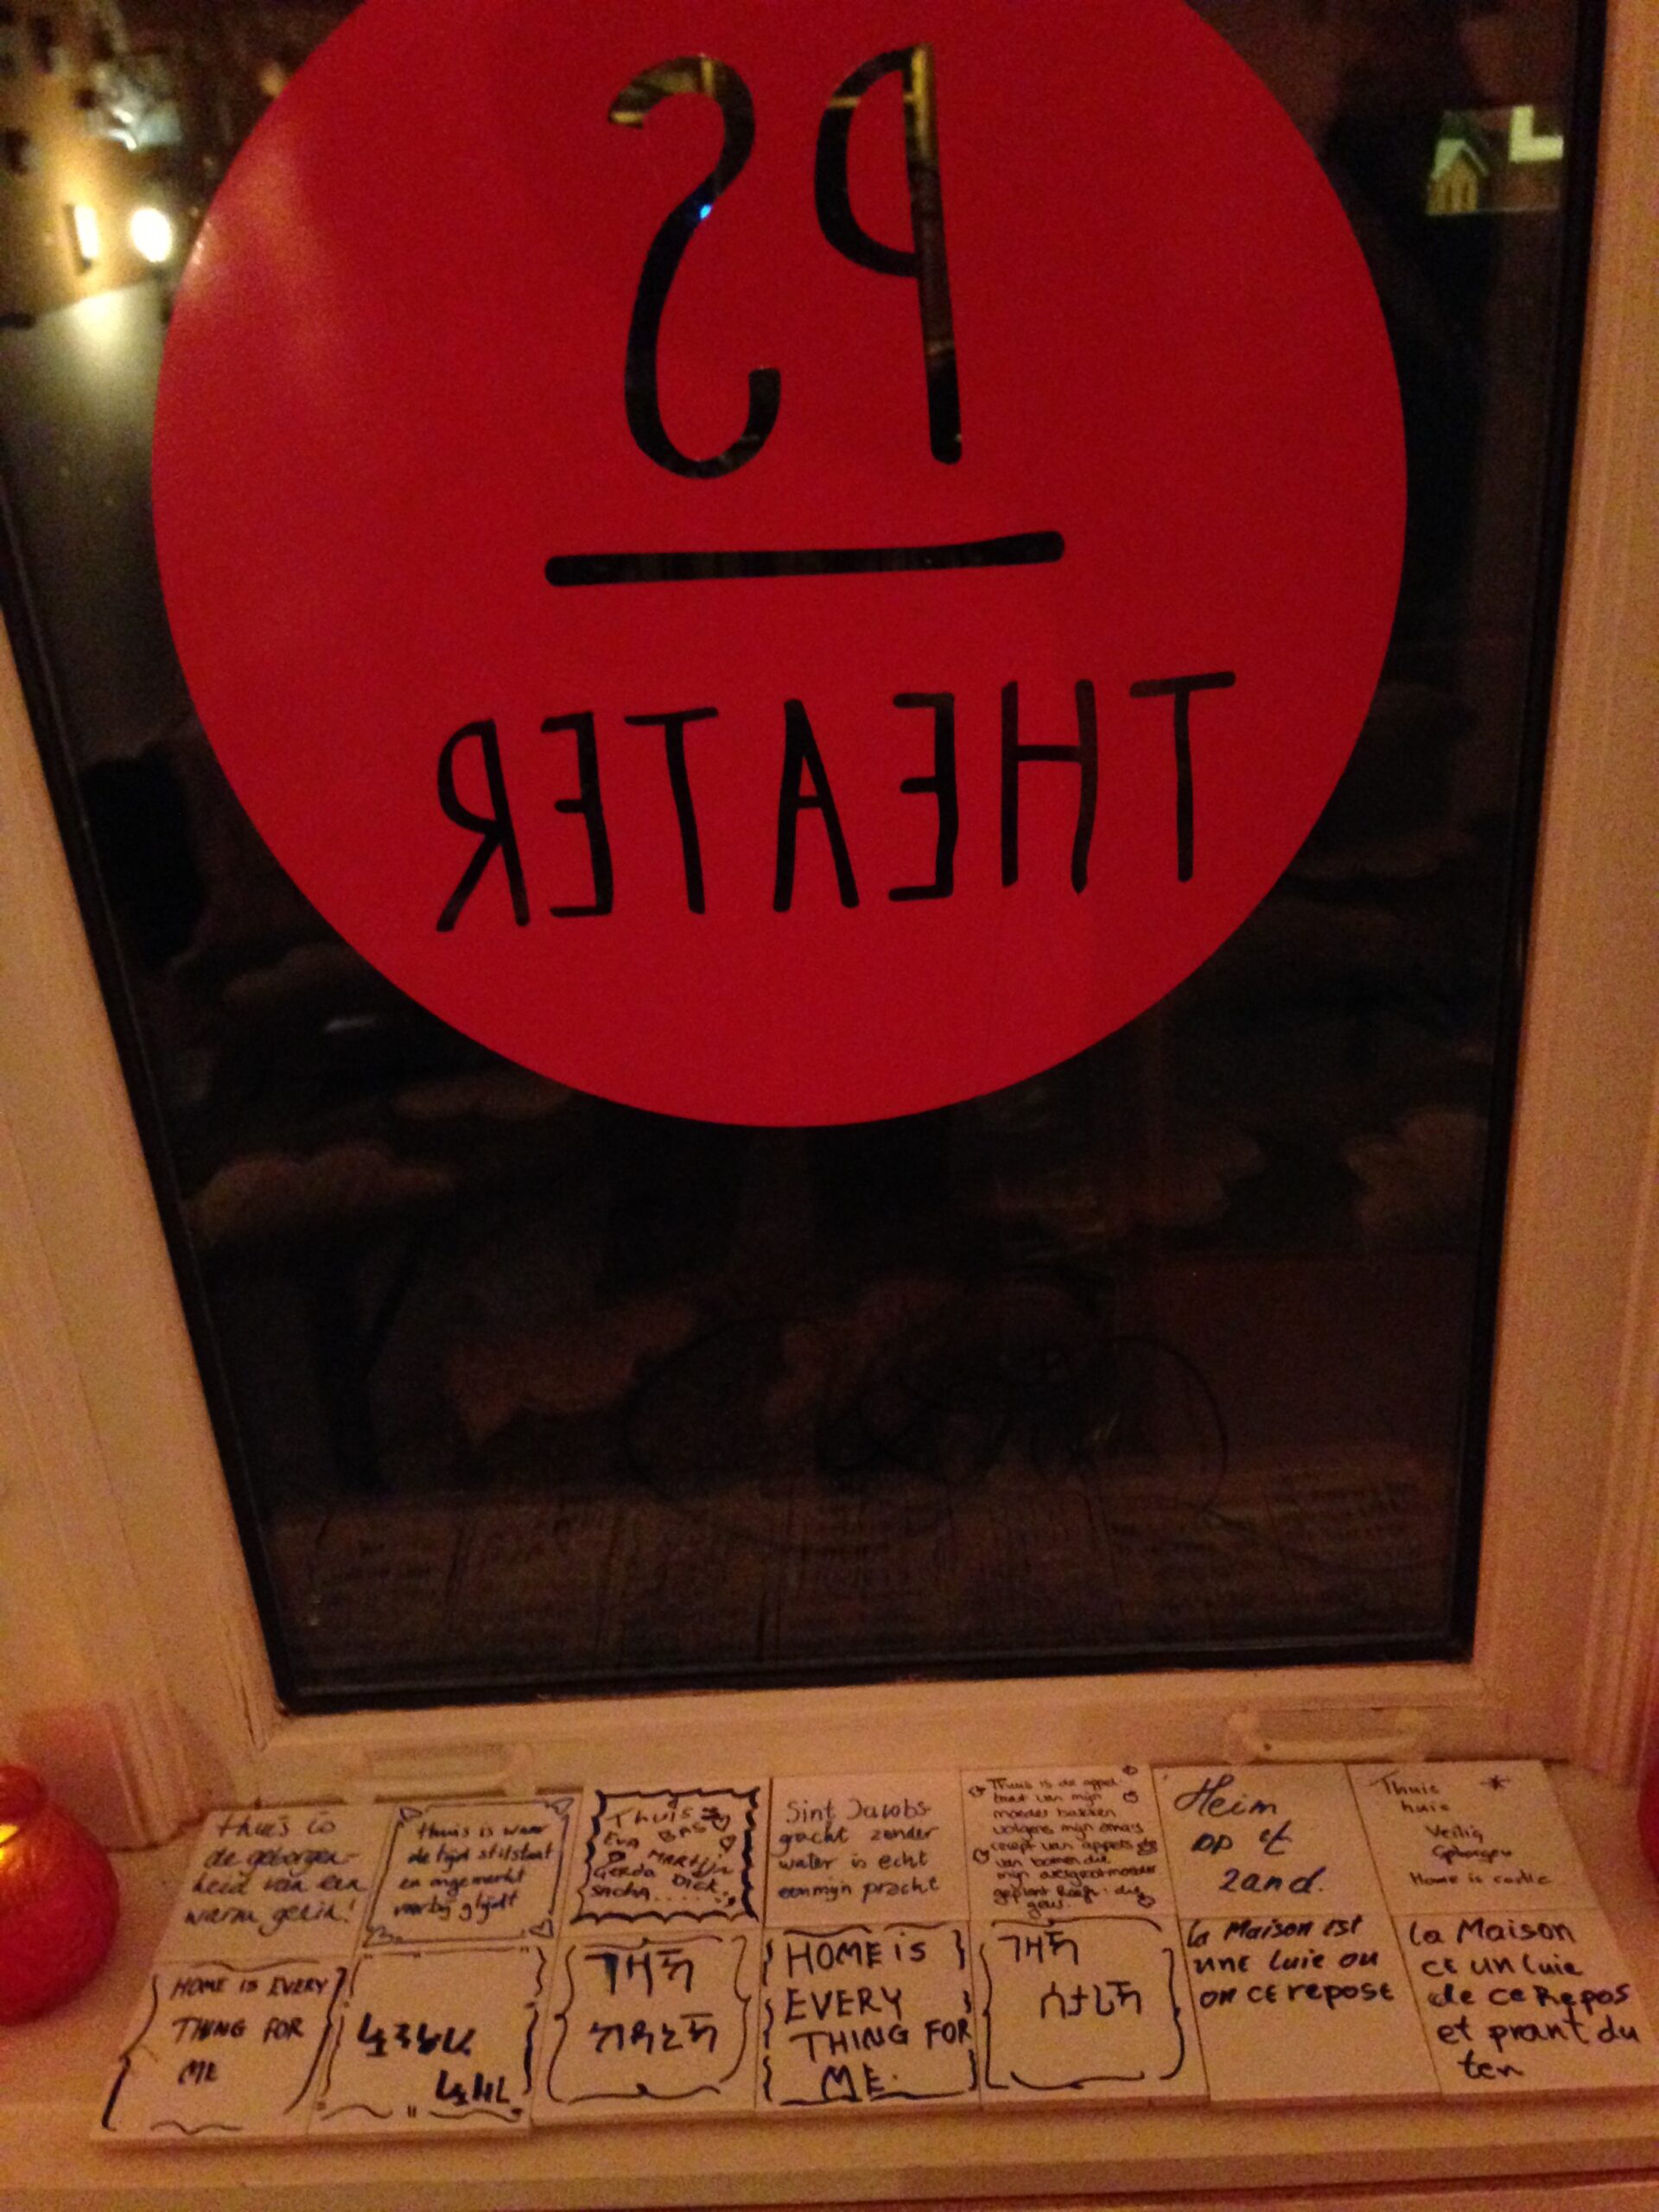 PS
THEATER
thuis is
de geborgen-
heid van een
warm gezin!
thuis is waar
de tijd stilstaat
en ongemerkt
voorbij glijdt
Thuis =
Eva BAS
Gerda Martijn
Sacha DICK
Sint Jacobs-
gracht zonder
water is echt
een mijn pracht
Thuis is de appel-
taart van mijn
moeder bakken
volgens mijn oma's
recept van appels
van bomen die
mijn overgrootmoeder
geplant heeft
Heim
op et
zand.
Thuis
huis
Veilig
Geborgen
Home is castle
HOME IS EVERY
THING FOR
ME
HOME iS
EVERY
THING FOR
ME.
la Maison est
une luie ou
on ce repose
la Maison
ce un luie
de ce Repos
et prant du
ten